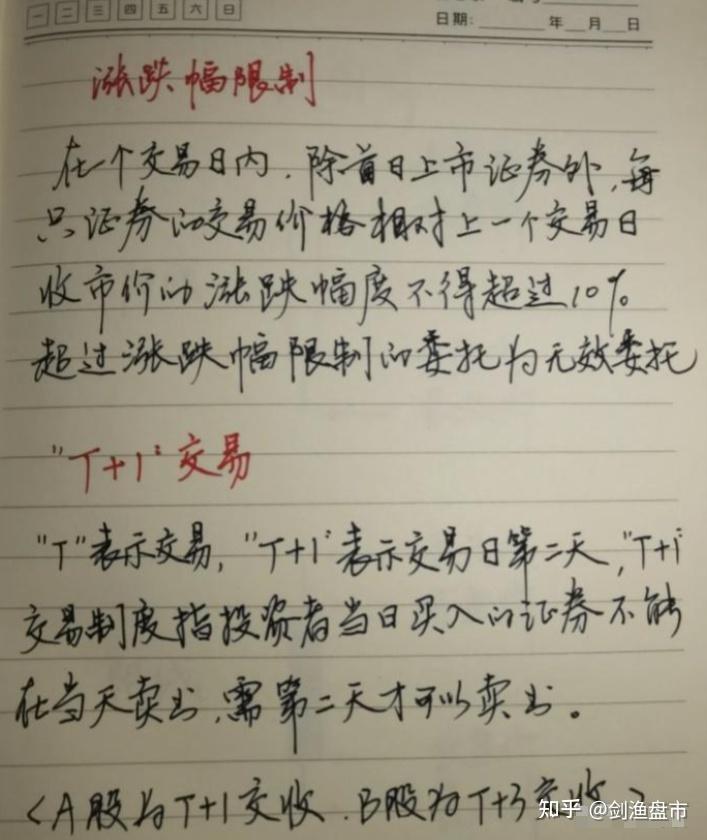 一 二 三 四 五 六 日
日期: 年 月 日
涨跌幅限制
在一个交易日内,除首日上市证券外,每
只证券的交易价格相对上一个交易日
收市价的涨跌幅度不得超过10%
超过涨跌幅限制的委托为无效委托
"T+1"交易
"T"表示交易,"T+1"表示交易日第二天,"T+1"
交易制度指投资者当日买入的证券不能
在当天卖出,需第二天才可以卖出。
<A股为T+1交收.B股为T+3交收>
知乎 @剑渔盘市